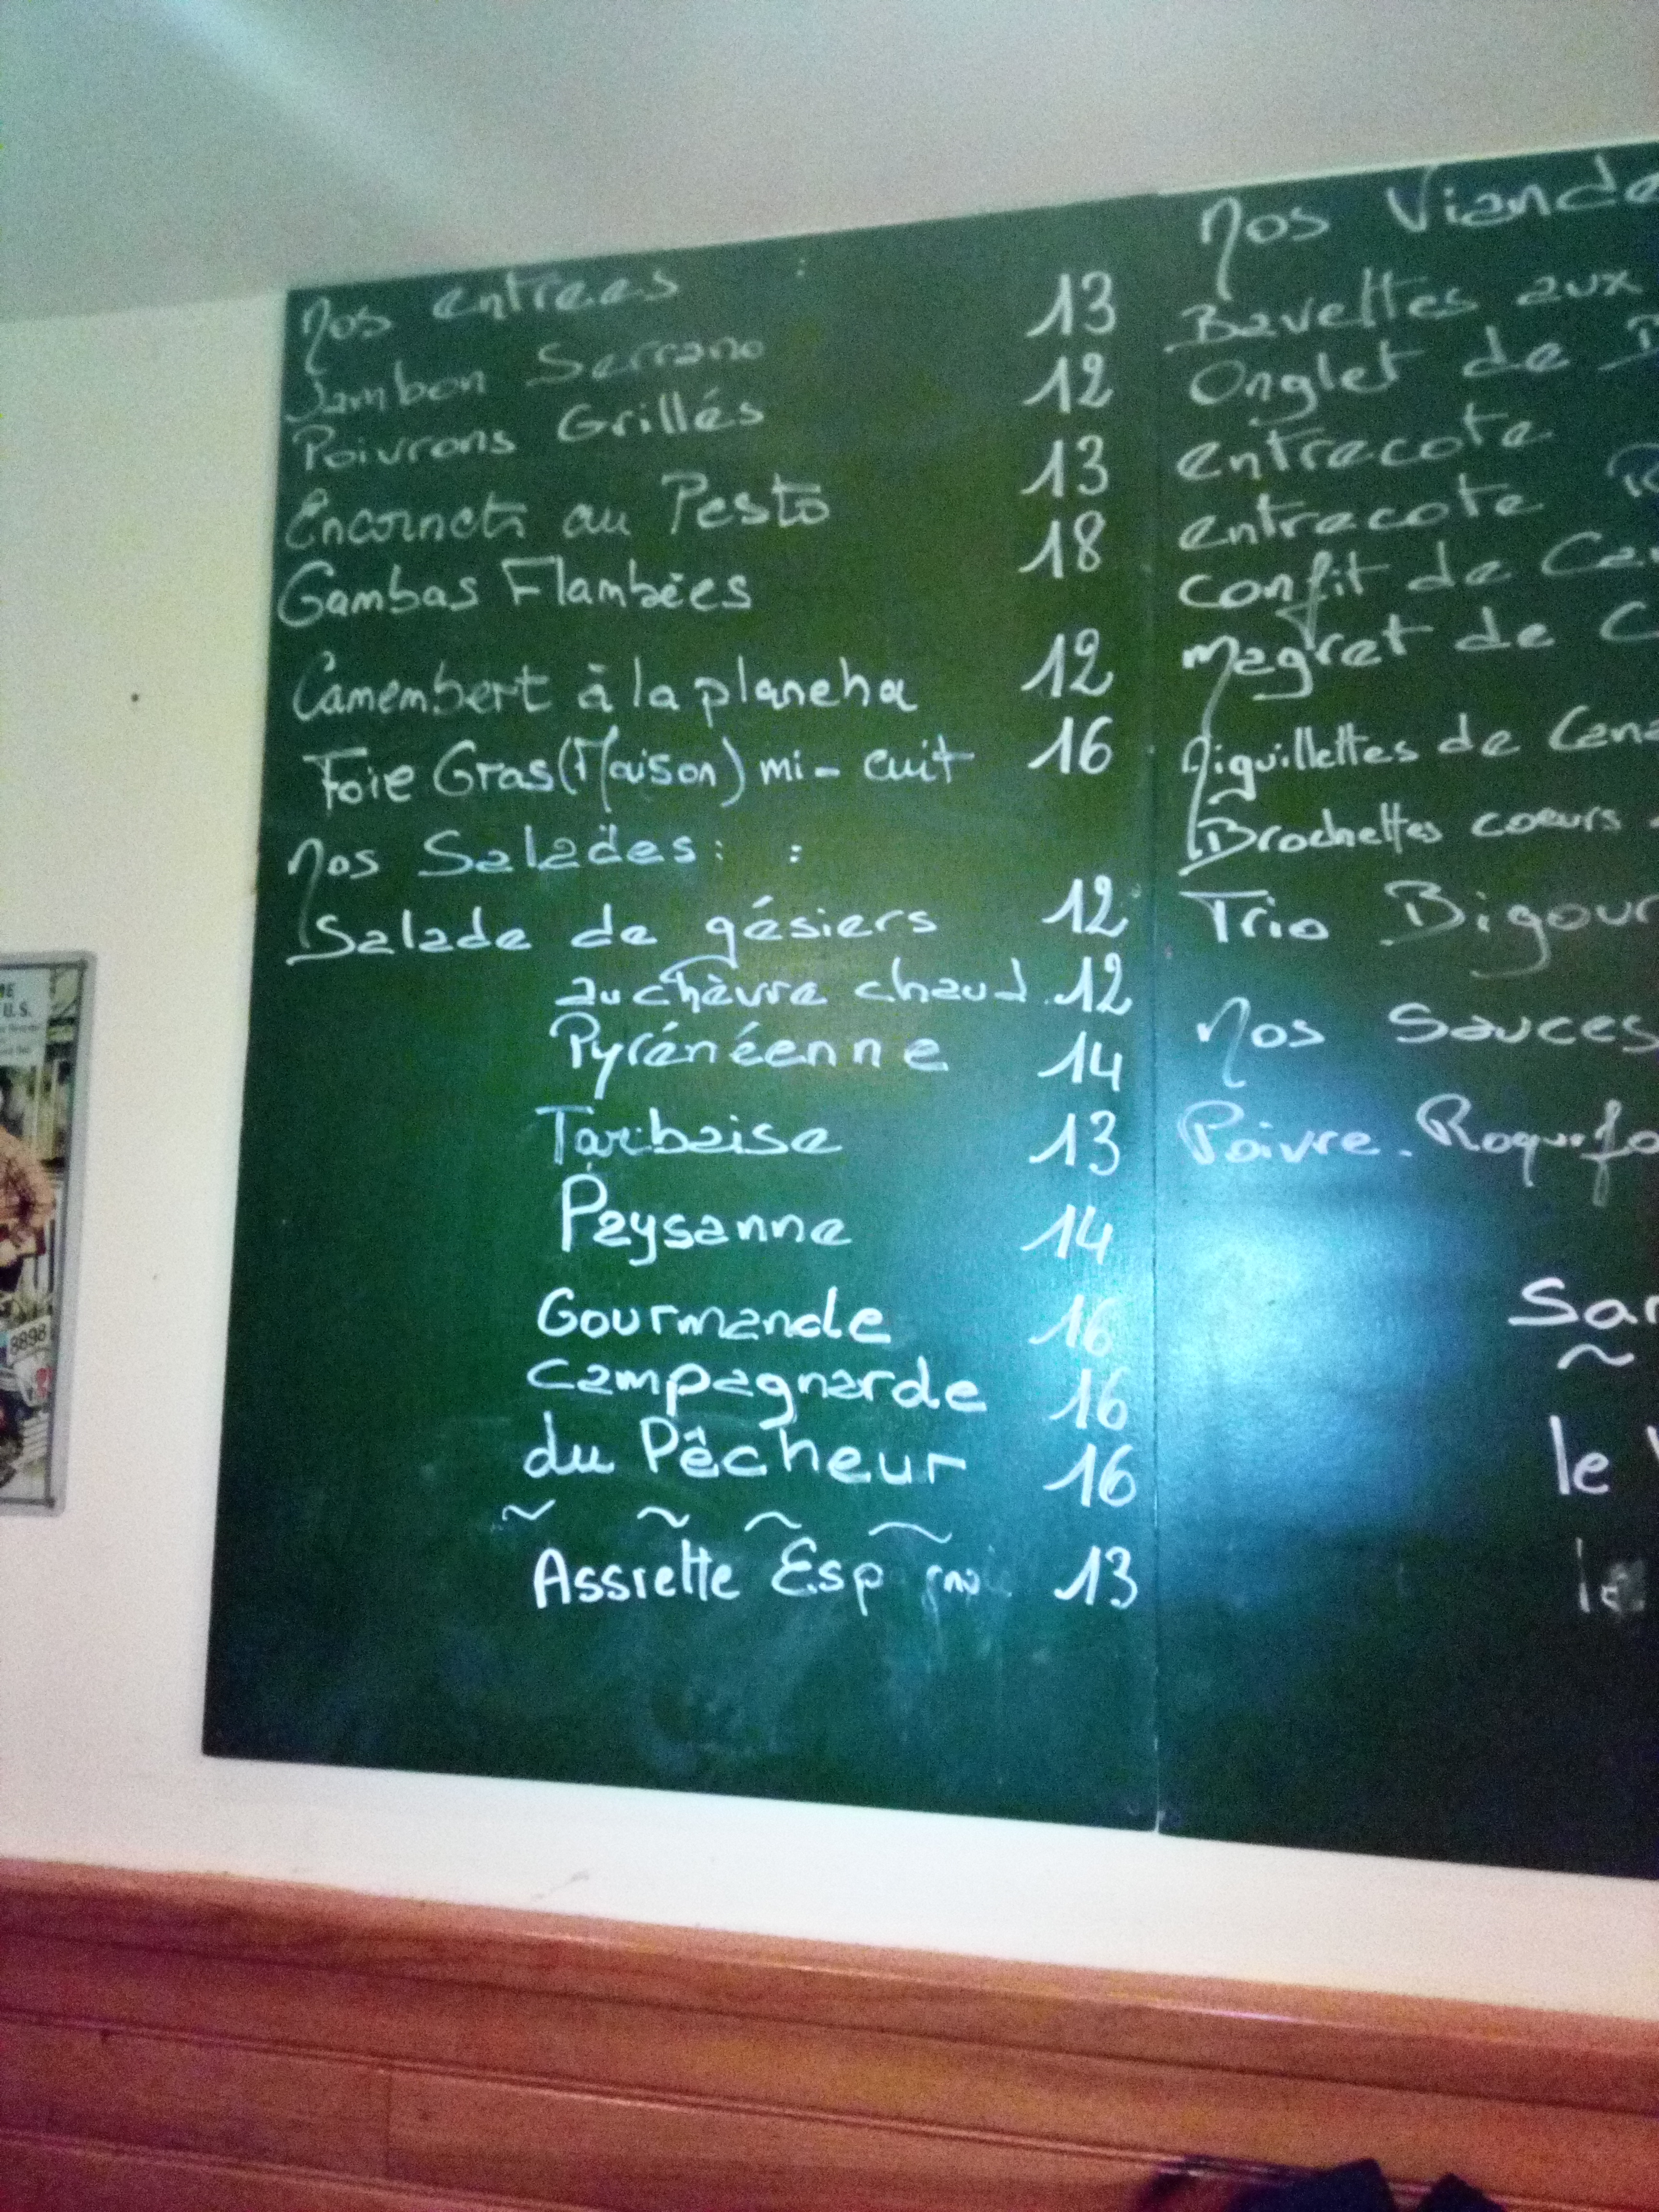 Nos entrees :
Jambon Serrano 13
Poivrons Grillés 12
Encornets au Pesto 13
Gambas Flambées 18
Camembert à la plancha 12
Foie Gras (Maison) mi-cuit 16
Nos Salades : :
Salade de gésiers 12
au chèvre chaud 12
Pyrénéenne 14
Tarbaise 13
Paysanne 14
Gourmande 16
Campagnarde 16
du Pêcheur 16
Assiette 13
Nos Viande
Bavettes aux
Onglet de
entrecote
entrecote
confit de
magret de C
Aiguillettes de Cana
Brochettes coeurs
Trio Bigour
Nos Sauces
Poivre. Roquefo
le
U.S.
8898